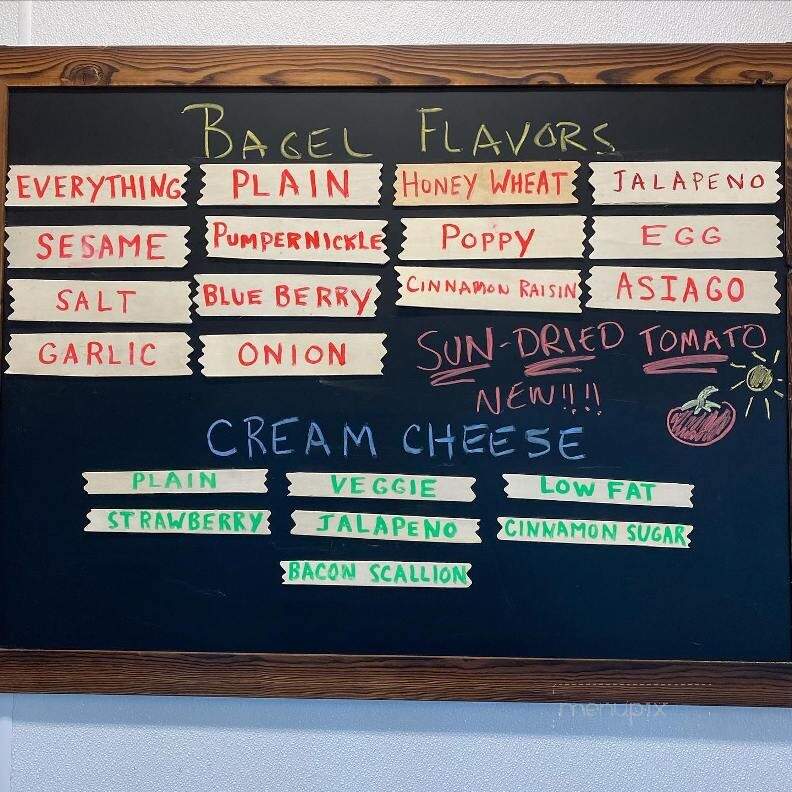 BAGEL FLAVORS
EVERYTHING PLAIN HONEY WHEAT JALAPENO
SESAME PUMPERNICKLE POPPY EGG
SALT BLUE BERRY CINNAMON RAISIN ASIAGO
GARLIC ONION SUN-DRIED TOMATO
NEW!!!!
CREAM CHEESE
PLAIN VEGGIE LOW FAT
STRAWBERRY JALAPENO CINNAMON SUGAR
BACON SCALLION
menupix